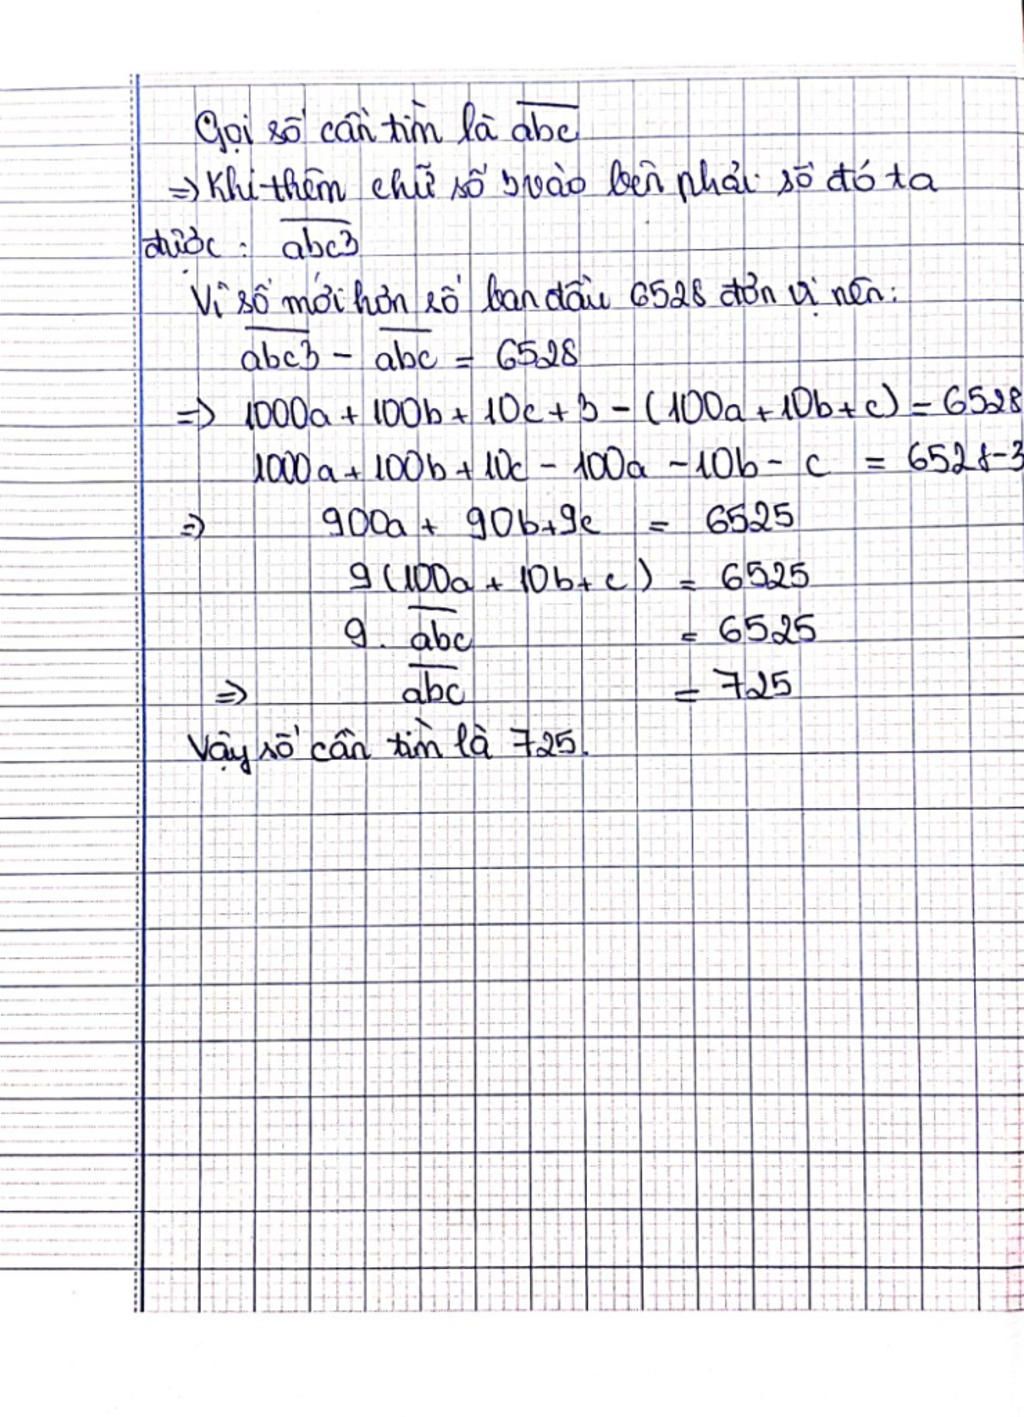 Gọi số cần tìm là \overline{abc}
=> Khi thêm chữ số 3 vào bên phải số đó ta
được : \overline{abc3}
Vì số mới hơn số ban đầu 6528 đơn vị nên:
\overline{abc3} - \overline{abc} = 6528
=> 1000a + 100b + 10c + 3 - (100a + 10b + c) = 6528
1000a + 100b + 10c - 100a - 10b - c = 6528-3
=> 900a + 90b + 9c = 6525
9(100a + 10b + c) = 6525
9. \overline{abc} = 6525
=> \overline{abc} = 725
Vậy số cần tìm là 725.